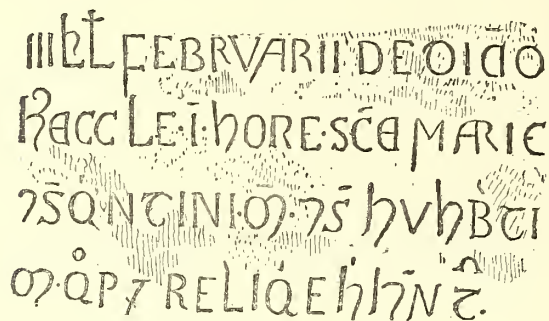 IIIKL FEBRVARII DEDICIO
HECC LE·Ī·HORE·SC̄E MARIE
⁊S̄QNTINI·M̄·⁊S̄ HVHB̄TI
M·Q̊P⁊ RELIQE HIHN̄T̄.